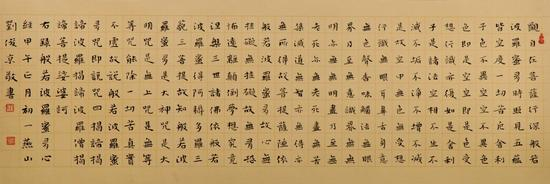 觀自在菩薩行深般若
波羅蜜多時照見五蘊
皆空度一切苦厄舍利
子色不異空空不異色
色即是空空即是色受
想行識亦復如是舍利
子是諸法空相不生不
滅不垢不淨不增不減
是故空中無色無受想
行識無眼耳鼻舌身意
無色聲香味觸法無眼
界乃至無意識界無無
明亦無無明盡乃至無
老死亦無老死盡無苦
集滅道無智亦無得以
無所得故菩提薩埵依
般若波羅蜜多故心無
罣礙無罣礙故無有恐
怖遠離顛倒夢想究竟
涅槃三世諸佛依般若
波羅蜜多得阿耨多羅三
藐三菩提故知般若波
羅蜜多是大神咒是大
明咒是無上咒是無等
等咒能除一切苦真實
不虛故說般若波羅蜜
多咒即說咒曰揭諦揭
諦波羅揭諦波羅僧揭
諦菩提娑婆訶
右錄般若波羅蜜多心
經甲午正月初一燕山
劉俊京敬書